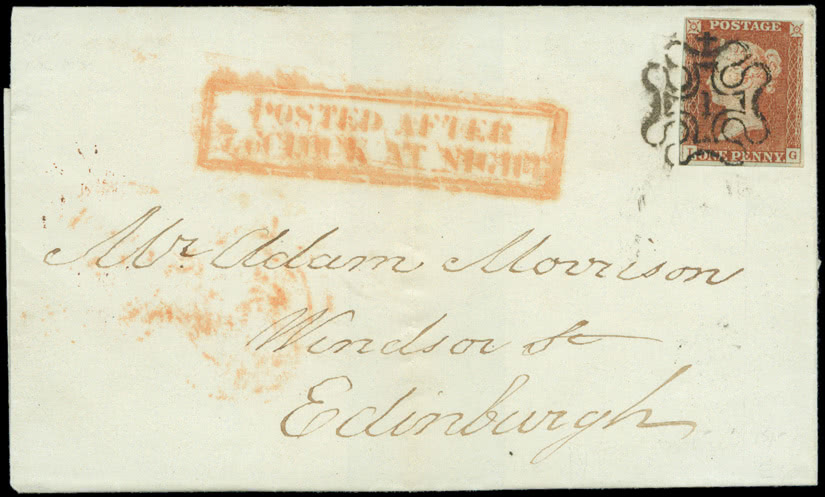 POSTAGE
ONE PENNY
G
POSTED AFTER
O'CLOCK AT NIGHT
Mr. Adam Morrison
Windsor St
Edinburgh